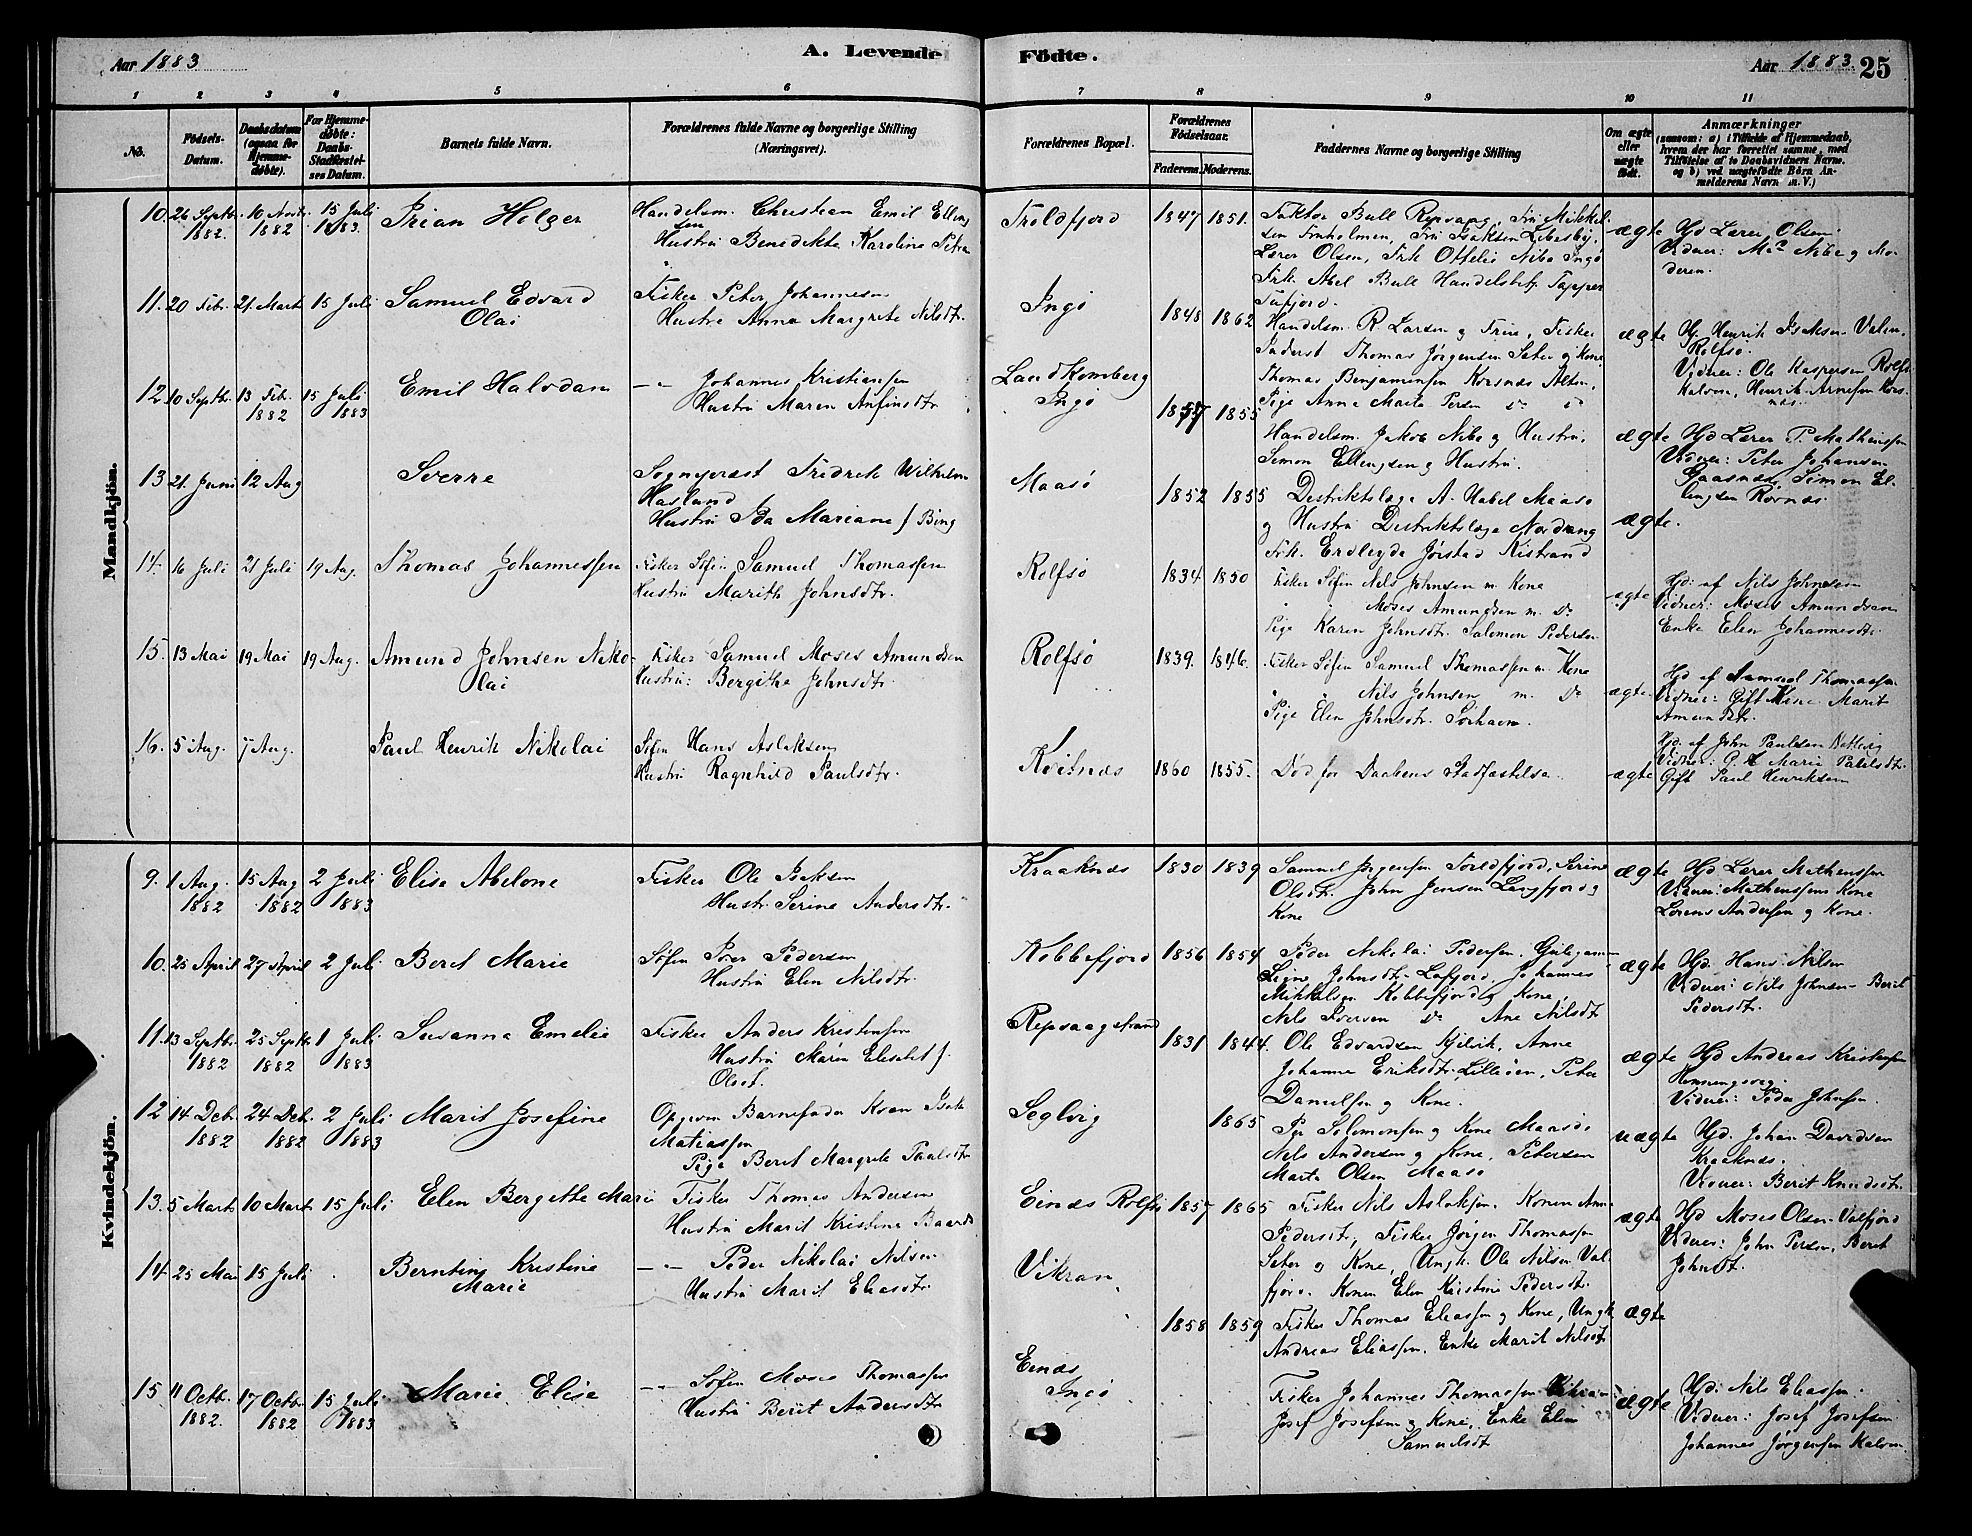 Aar 1883
A. Levende Födte.
Aar 1883. 25
1 2 3 4 5 6 7 8 9 10 11
No.
Födsels-Datum.
Daabsdatum (ogsaa for Hjemme-døbte).
For Hjemme-døbte: Daabs-Stadfæstel-ses Datum.
Barnets fulde Navn.
Forældrenes fulde Navne og borgerlige Stilling (Næringsvei).
Forældrenes Bopæl.
Forældrenes Födselsaar.
Faderens. Moderens.
Faddernes Navne og borgerlige Stilling
Om ægte eller uægte født.
Anmærkninger
(saasom: a) i Tilfælde af Hjemmedaab, hvem der har forrettet samme, med Tilföielse af to Daabsvidners Navne. og b) ved uægtefødte Börn An-melderens Navn m. V.)
Mandkjön.
10. 26 Septbr. 1882. 10 Novbr. 1882 15 Juli 1883. Prian Holger
Handelsm. Christian Emil Elling
sen
Hustru Benedikte Karoline Petra
Troldfjord 1847 1851.
Faktor Bull Repvaag, Fru Mikkel-
sen Finholmen, Fru Isaksen Lebesby,
Lærer Olsen, Frk Ottelie Nibe Ingø
Frk. Abel Bull Handelsbetj. Tapper
Tufjord.
ægte Hjd Lærer Olsen
Vidner: Nibe og Mo-
deren.
11. 20 Febr. 21. Marts 15 Juli Samuel Edvard
Olai
Fisker Peter Johannesen
Hustru Anna Margrete Nilsdtr.
Ingø 1848 1862
Handelsm. R Larsen og Frue, Fisker
Thomas Jørgensen Sæter og Kone
Thomas Benjaminsen Korsnæs Alten,
Pige Anne Marta Persen do do
ægte Hj. Henrik Isaksen Valen.
Rolfsø.
Vidner: Ole Kaspersen Rolfs
Henrik Arnesen Kors-
næs.
12. 10 Septbr. 13 Feb. 1882 15 Juli 1883 Emil Halvdan
-"- Johannes Kristiansen
Hustru Maren Anfinsdtr
Ingø 1857 1855
Handelsm. Jakob Nibe og Hustru,
Simon Ellingsen og Hustru.
ægte Hjd Lærer P. Mathiassen
Vidner: Peter Johansen
Gaasnæs, Simon El-
lingsen Kornæs
13 21. Juni 12 Aug Sverre
Sogneprest Fredrik Wilhelm
Haslund
Hustru Ida Mariane f Bing
Maasø 1852 1855
Distriktslæge A. Habel Maasø
og Hustru Distriktslæge Nordvang
Frk. Jørstad Kistrand
ægte.
14. 16 Juli 21 Juli 19 Aug. Thomas Johannessen
Fisker Søfin Samuel Thomassen
Hustru Marith Johnsdtr.
Rolfsø 1834 1850
Fisker Søfin Nils Johnsen m. Kone
" Moses Amundsen m. Do
Pige Karen Johnsdtr. Salomon Pedersen
ægte Hjd: af Nils Johnsen
Vidner: Moses Amundsen
Enke Elen Johannesdtr.
15. 13 Mai 19 Mai 19 Aug. Amund Johnsen Niko-
lai
Fisker Samuel Moses Amundsen
Hustru: Bergithe Johnsdtr.
Rolfsø 1839. 1846.
Fisker Søfin Samuel Thomassen m. Kone
" Nils Johnsen m. Do
Pige Elen Johnsdtr. Sørhavn.
ægte. Hjd af Samuel Thomassen
Vidner: Gift Kone Marit
Amundsdtr.
16. 5 Aug. 7 Aug. Paul Henrik Nikolai
Søfin Hans Aslaksen
Hustru Ragnhild Paulsdtr.
Kvitnæs 1860 1855.
Død før Daabens Stadfæstelse.
ægte Hjd. af John Paulsen
Vidner: Marie Paulsdtr.
Gift Paul Henriksen
Kvindekjön.
9. 1 Aug. 1882 15 Aug 1882 2 Juli 1883 Elise Abelone
Fisker Ole Isaksen
Hustr. Serine Andersdtr.
Kraaknæs 1830 1839
Samuel Jørgensen Troldfjord, Serine
Olsdtr. John Jensen Langfjord og
Kone
ægte Hjd Lærer Mathiassen
Vidner: Mathiassens Kone
Lorens Andersen og Kone.
10. 25 April 27 April 2 Juli Beret Marie
Søfin Peder Pedersen
Hustru Elen Nilsdtr.
Kobbefjord 1856 1854
Peder Nikolai Pedersen.
Signe Johnsdtr. Lafjord, Johannes
Mikkelsen Kobbefjord og Kone
Nils Iversen Do Ane Nilsdt
ægte Hjd. Hans Nilsen
Vidner: Nils Johnsen - Berit
Pedersdtr.
11. 13 Septbr. 1882 25 Septbr 1882 1 Juli 1883 Susanna Emelie
Fisker Anders Kristensen
Hustru Maren Elisabet f.
Olsdt.
Repvaagstrand 1831 1844.
Ole Edvardsen Gjelvik, Anne
Johanne Eriksdtr. Lilleøen, Peter
Danielsen og Kone.
ægte Hjd Andreas Kristensen
Honningsvaag.
Vidner: Peder Johnsen.
12 14 Dcbr. 1882 24 Dcbr. 1882 2 Juli 1883 Marit Josefine
Opgiven Barnefader Kvæn Isak
Matiassen
Pige Berit Margrete Paulsdtr
Seglvig 1865
Per Solomonsen og Kone Maasø
Nils Andersen og Kone, Petersen
Marta Olsen Maasø
uægte Hjd. Johan Davidsen
Kraaknæs.
Vidner: Berit Knudsdtr.
13. 5 Marts 10 Marts 15 Juli Elen Bergitte Marie
Fisker Thomas Andersen
Hustru Marit Kristine Baards
Einæs Rolfsø 1857 1865
Fisker Nils Aslaksen. Konen Anne
Pedersdt, Fisker Jørgen Thomassen
Sæter og Kone, Ungk. Ole Nilsen Val-
fjord. Konen Elen Kristine Pedersdt.
ægte Hjd Moses Olsen Valfjord
Vidner: John Persen, Berit
Johnsdt.
14. 25 Mai 15 Juli Berntine Kristine
Marie
-"- Peder Nikolai Nilsen
Hustru Marit Eliasdtr.
Vikran 1858 1859
Fisker Thomas Eliassen og Kone, Ungk.
Andreas Eliassen, Enke Marit Nilsdtr
ægte
15. 11 Octbr. 1882. 17 Octbr 1882 15 Juli 1883 Marie Elise
-"- Søfin Moses Thomassen
Hustru Berit Andersdtr
Einæs
Ingø
Fisker Johannes Thomassen Vikran
Josef Josefsen og Kone, Enke Elen
Samuelsdt
ægte Hjd: Nils Eliassen.
Vidner: Josef Josefsen
Johannes Jørgensen